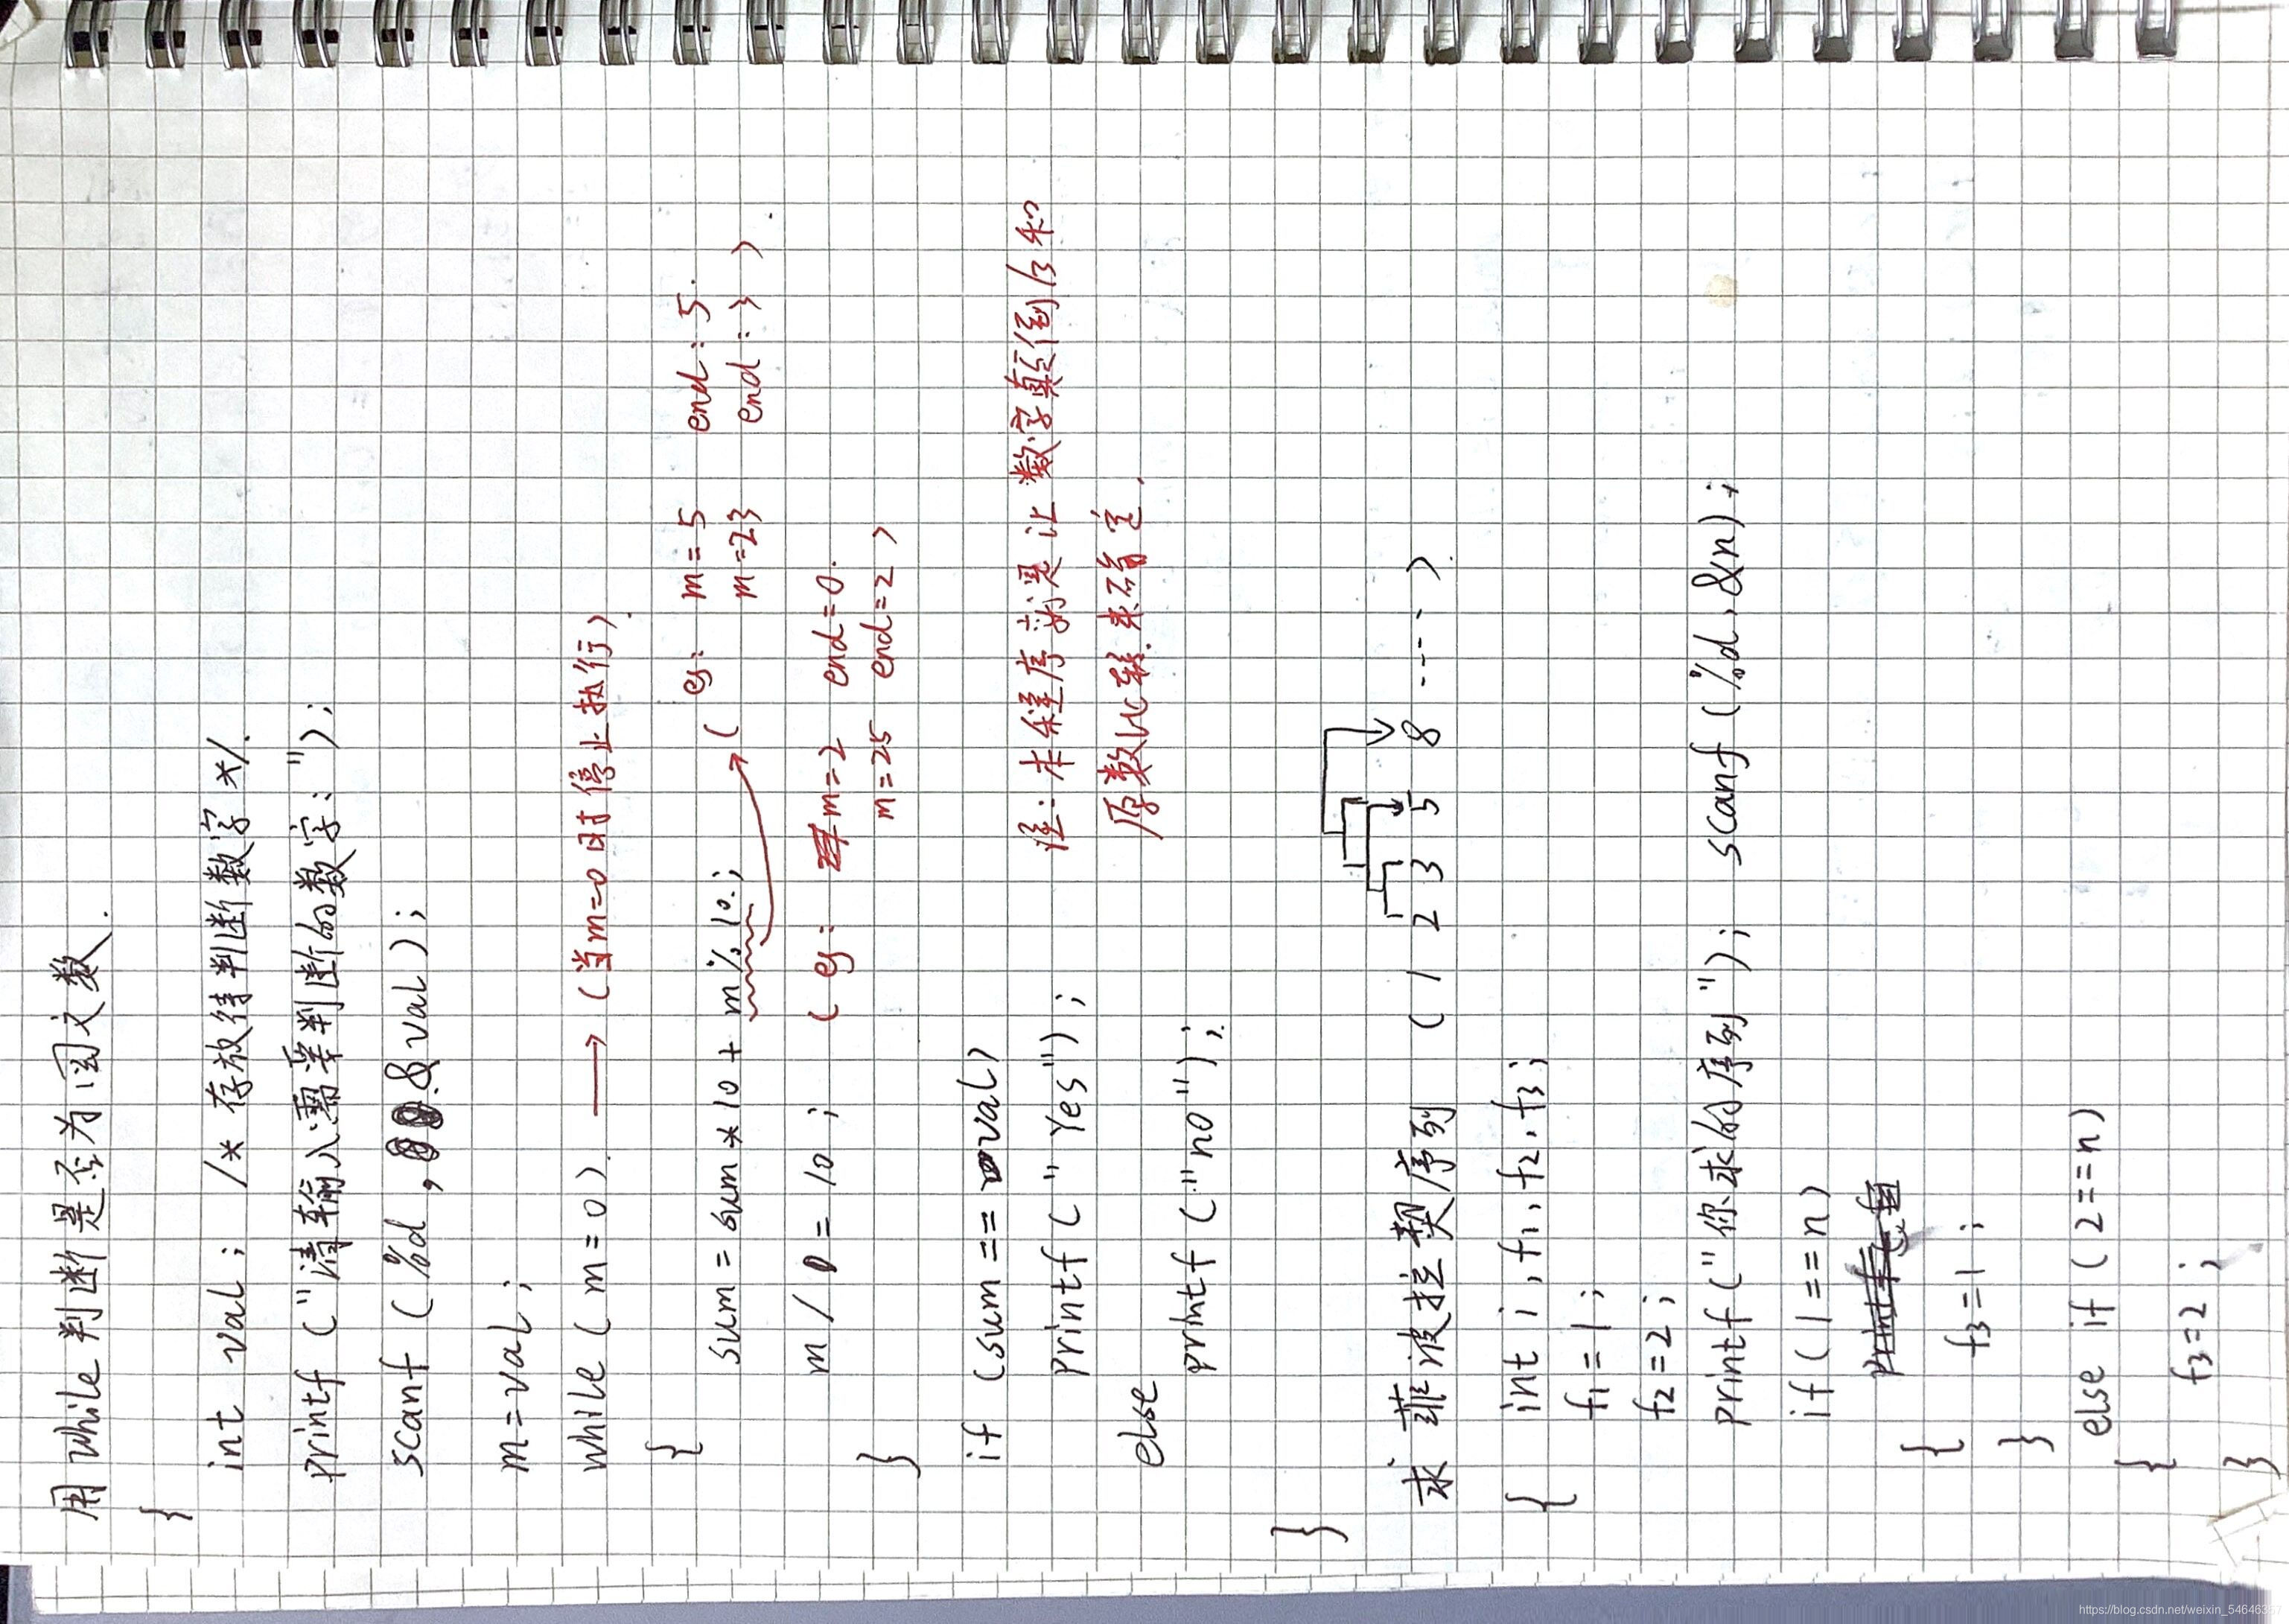 用while判断是否为回文数.
{
int val; /* 存放待判断数字 */.
printf ("请输入需要判断的数字:");
scanf (%d , &val);
m=val;
while (m=0). → (当m=0时停止执行).
{
sum=sum*10+m%10.; ( eg: m=5 end:5.
m=23 end:3 ).
m/=10; ( eg: m=2 end=0.
m=25 end=2 )
}
if (sum==val) 注:本程序就是让数字颠倒后和
printf ("Yes"); 原数比较.来不肯定.
else
printf ("no");
}
求菲波拉契序列 ( 1 2 3 5 8 ---- ).
{ int i, f1, f2, f3;
f1=1;
f2=2;
printf ("你求的序列"); scanf (%d, &n);
if (1==n)
{
f3=1;
}
else if (2==n)
{
f3=2;
}
https://blog.csdn.net/weixin_54646357